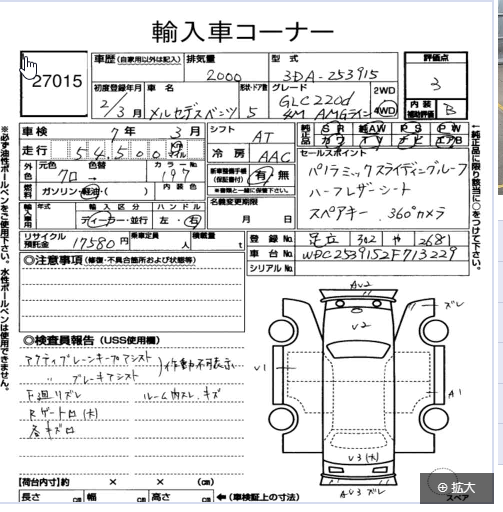 輸入車コーナー
27015
車歴 (自家用以外は記入) 排気量 2000 型式 3DA-253915
評価点 3
初度登録年月 2/3月 車名 メルセデスベンツ 形状・ドア数 5 グレード GLC220d 4M AMGライン 2WD 4WD
内装補助評価 B
車検 7年3月 シフト AT
純正品 SR 純AW PS PW カワ TV ナビ エアB
走行 54,500 Km マイル 冷房 AAC
セールスポイント
外色 元色 クロ → 色替 カラーNo. 197
新車整備手帳(保証書付) 有・無
※書類と一緒に保管下さい。
パノラミックスライディングルーフ
ハーフレザーシート
スペアキー、360°カメラ
燃料 ガソリン・軽油・( ) 内装色
名義変更期限 月 日
輸入車用 輸入区分 ディーラー・並行 ハンドル 左・右
リサイクル預託金 17580円 乗車定員 人 積載量 t
登録No. 足立 302 や 2681
車台No. WDC2539152F713229
シリアルNo.
◎注意事項 (修復・不具合箇所および状態等)
◎検査員報告 (USS使用欄)
アクティブレーンキープアシスト
〃 ブレーキアシスト )作動不可表示
下廻りズレ ルーム内スレ、キズ
Rゲートロ(大)
各キズロ
AV2
V2
ズレ
V1
A1
V3(大)
AV3 ズレ
スペア
【荷台内寸】約 × × (cm)
長さ cm 幅 cm 高さ cm ←(車検証上の寸法)
※必ず油性ボールペンをご使用下さい。水性ボールペンは使用できません。
←純正品に限り該当に○をつけて下さい。
拡大